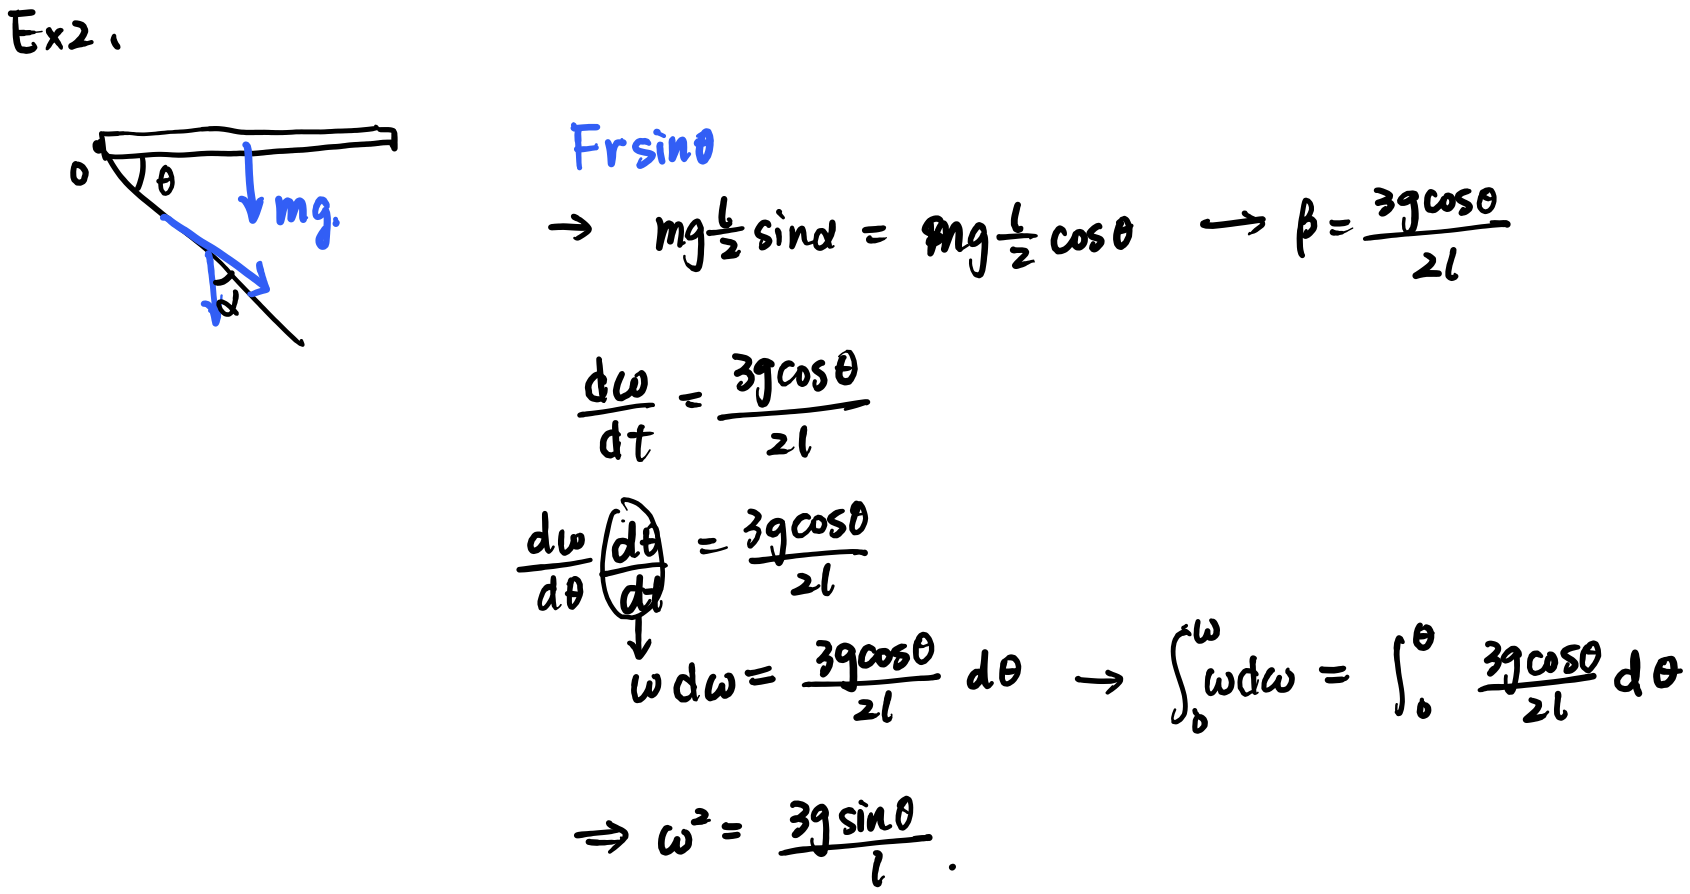 Ex2.
O θ mg.
α
Frsinθ
→ mg l/2 sinα = mg l/2 cosθ → β = 3gcosθ/2l
dω/dt = 3gcosθ/2l
dω/dθ dθ/dt = 3gcosθ/2l
↓
ω dω = 3gcosθ/2l dθ → ∫₀^ω ωdω = ∫₀^θ 3gcosθ/2l dθ
⇒ ω² = 3g sinθ/l .